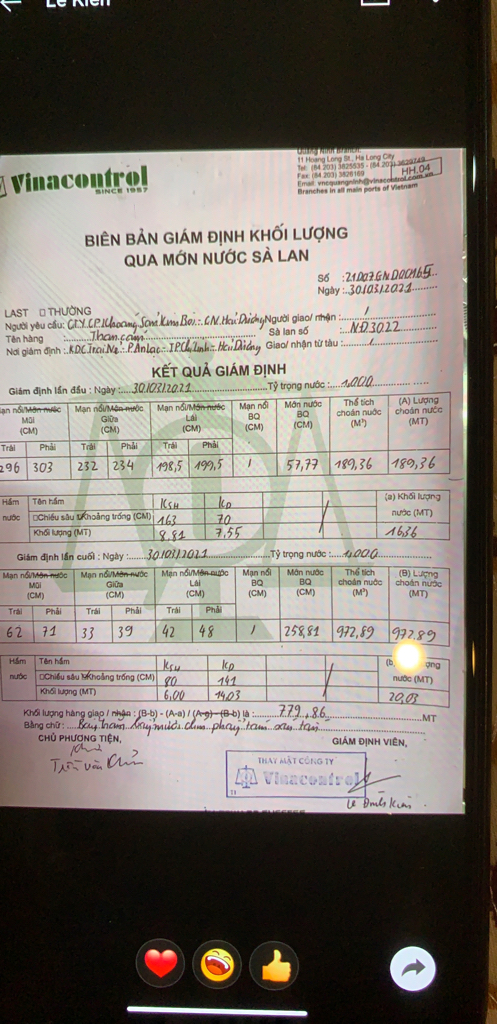 Le Kien
Vinacontrol
SINCE 1957
Quang Ninh Branch:
11 Hoang Long St., Ha Long City
Tel: (84.203) 3825535 - (84.203) 3629749
Fax: (84 203) 3826169
Email: vncquangninh@vinacontrol.com.vn
Branches in all main ports of Vietnam
HH.04
BIÊN BẢN GIÁM ĐỊNH KHỐI LƯỢNG
QUA MỚN NƯỚC SÀ LAN
Số :21D07GND00165
Ngày :.30/03/2021
LAST □ THƯỜNG
Người yêu cầu: CTY.CP.Khoáng Sản Kim Bôi - CN.Hải Dương Người giao/ nhận : /
Tên hàng : Than cám Sà lan số : NĐ3022
Nơi giám định : KDC Trại Nẻ - P.An Lạc - TP.Chí Linh - Hải Dương Giao/ nhận từ tàu : /
KẾT QUẢ GIÁM ĐỊNH
Giám định lần đầu : Ngày: 30/03/2021 Tỷ trọng nước : 1,000
Mạn nổi/Mớn nước Mũi (CM) Mạn nổi/Mớn nước Giữa (CM) Mạn nổi/Mớn nước Lái (CM) Mạn nổi BQ (CM) Mớn nước BQ (CM) Thể tích choán nước (M³) (A) Lượng choán nước (MT)
Trái Phải Trái Phải Trái Phải
296 303 232 234 198,5 199,5 / 57,77 189,36 189,36
Hầm nước Tên hầm KSH KP (a) Khối lượng nước (MT)
□Chiều sâu Khoảng trống (CM) 163 70
Khối lượng (MT) 8,81 7,55 16,36
Giám định lần cuối : Ngày : 30/03/2021 Tỷ trọng nước : 1,000
Mạn nổi/Mớn nước Mũi (CM) Mạn nổi/Mớn nước Giữa (CM) Mạn nổi/Mớn nước Lái (CM) Mạn nổi BQ (CM) Mớn nước BQ (CM) Thể tích choán nước (M³) (B) Lượng choán nước (MT)
Trái Phải Trái Phải Trái Phải
62 71 33 39 42 48 / 258,81 972,89 972,89
Hầm nước Tên hầm KSH KP (b ượng nước (MT)
□Chiều sâu Khoảng trống (CM) 80 141
Khối lượng (MT) 6,00 14,03 20,03
Khối lượng hàng giao / nhận : (B-b) - (A-a) / (A-a) - (B-b) là : 779,86 MT
Bằng chữ : Bảy trăm bảy mươi chín phẩy tám sáu tấn
CHỦ PHƯƠNG TIỆN, GIÁM ĐỊNH VIÊN,
Trần Văn
THAY MẶT CÔNG TY
Vinacontrol
Lê Đình Kiên